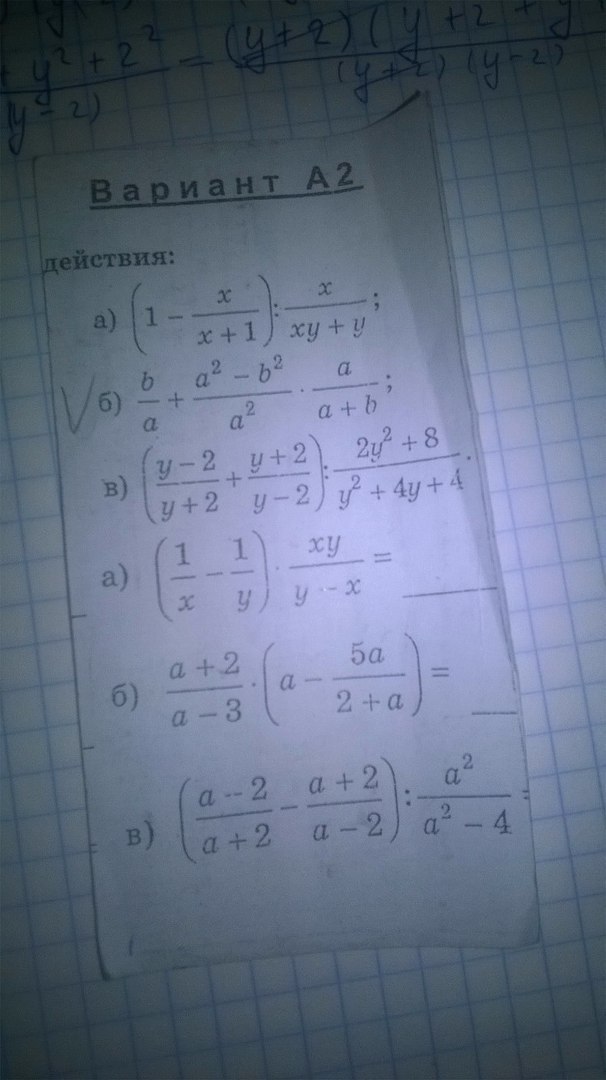 y² + 2² = (y+2)(y+2+y
(y-2) (y+2)(y-2)
Вариант А2
действия:
а) (1 − x/(x+1)) : x/(xy+y);
б) b/a + (a² − b²)/a² · a/(a+b);
в) ((y−2)/(y+2) + (y+2)/(y−2)) : (2y²+8)/(y²+4y+4).
а) (1/x − 1/y) · xy/(y−x) = ____
б) (a+2)/(a−3) · (a − 5a/(2+a)) = ____
в) ((a−2)/(a+2) − (a+2)/(a−2)) : a²/(a²−4) =